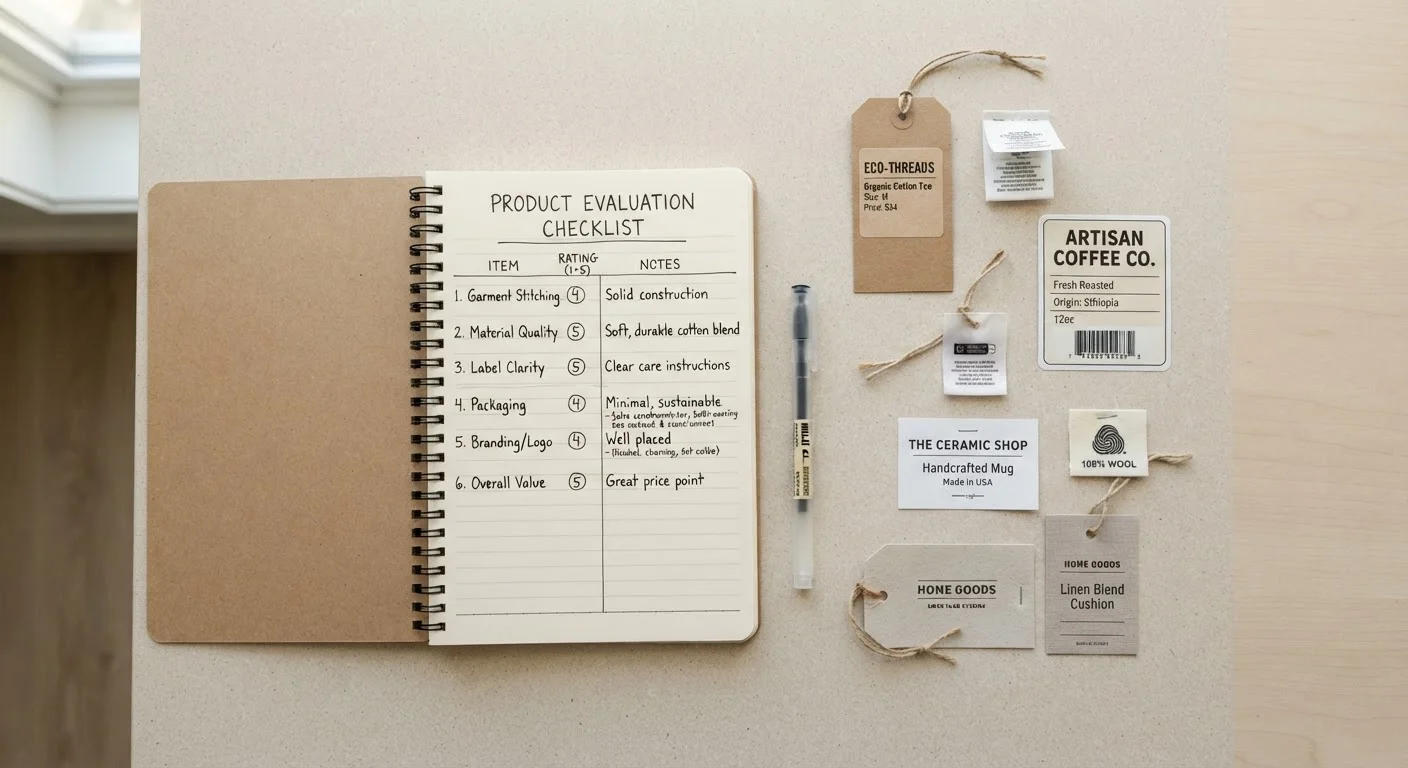 PRODUCT EVALUATION
CHECKLIST
ITEM RATING (1-5) NOTES
1. Garment Stitching 4 Solid construction
2. Material Quality 5 Soft, durable cotten blend
3. Label Clarity 5 Clear care instructions
4. Packaging 4 Minimal, sustainable
5. Branding/Logo 4 Well placed
6. Overall Value 5 Great price point
ECO-THREAUS
Organic Cetion Tee
ARTISAN
COFFEE CO.
Fresh Roasted
Origin: Sthiopia
12ec
THE CERAMIC SHOP
Handcrafted Mug
Made in USA
108% WOOL
HONE GOODS
HOME GOODS
Linen Blend
Cushion